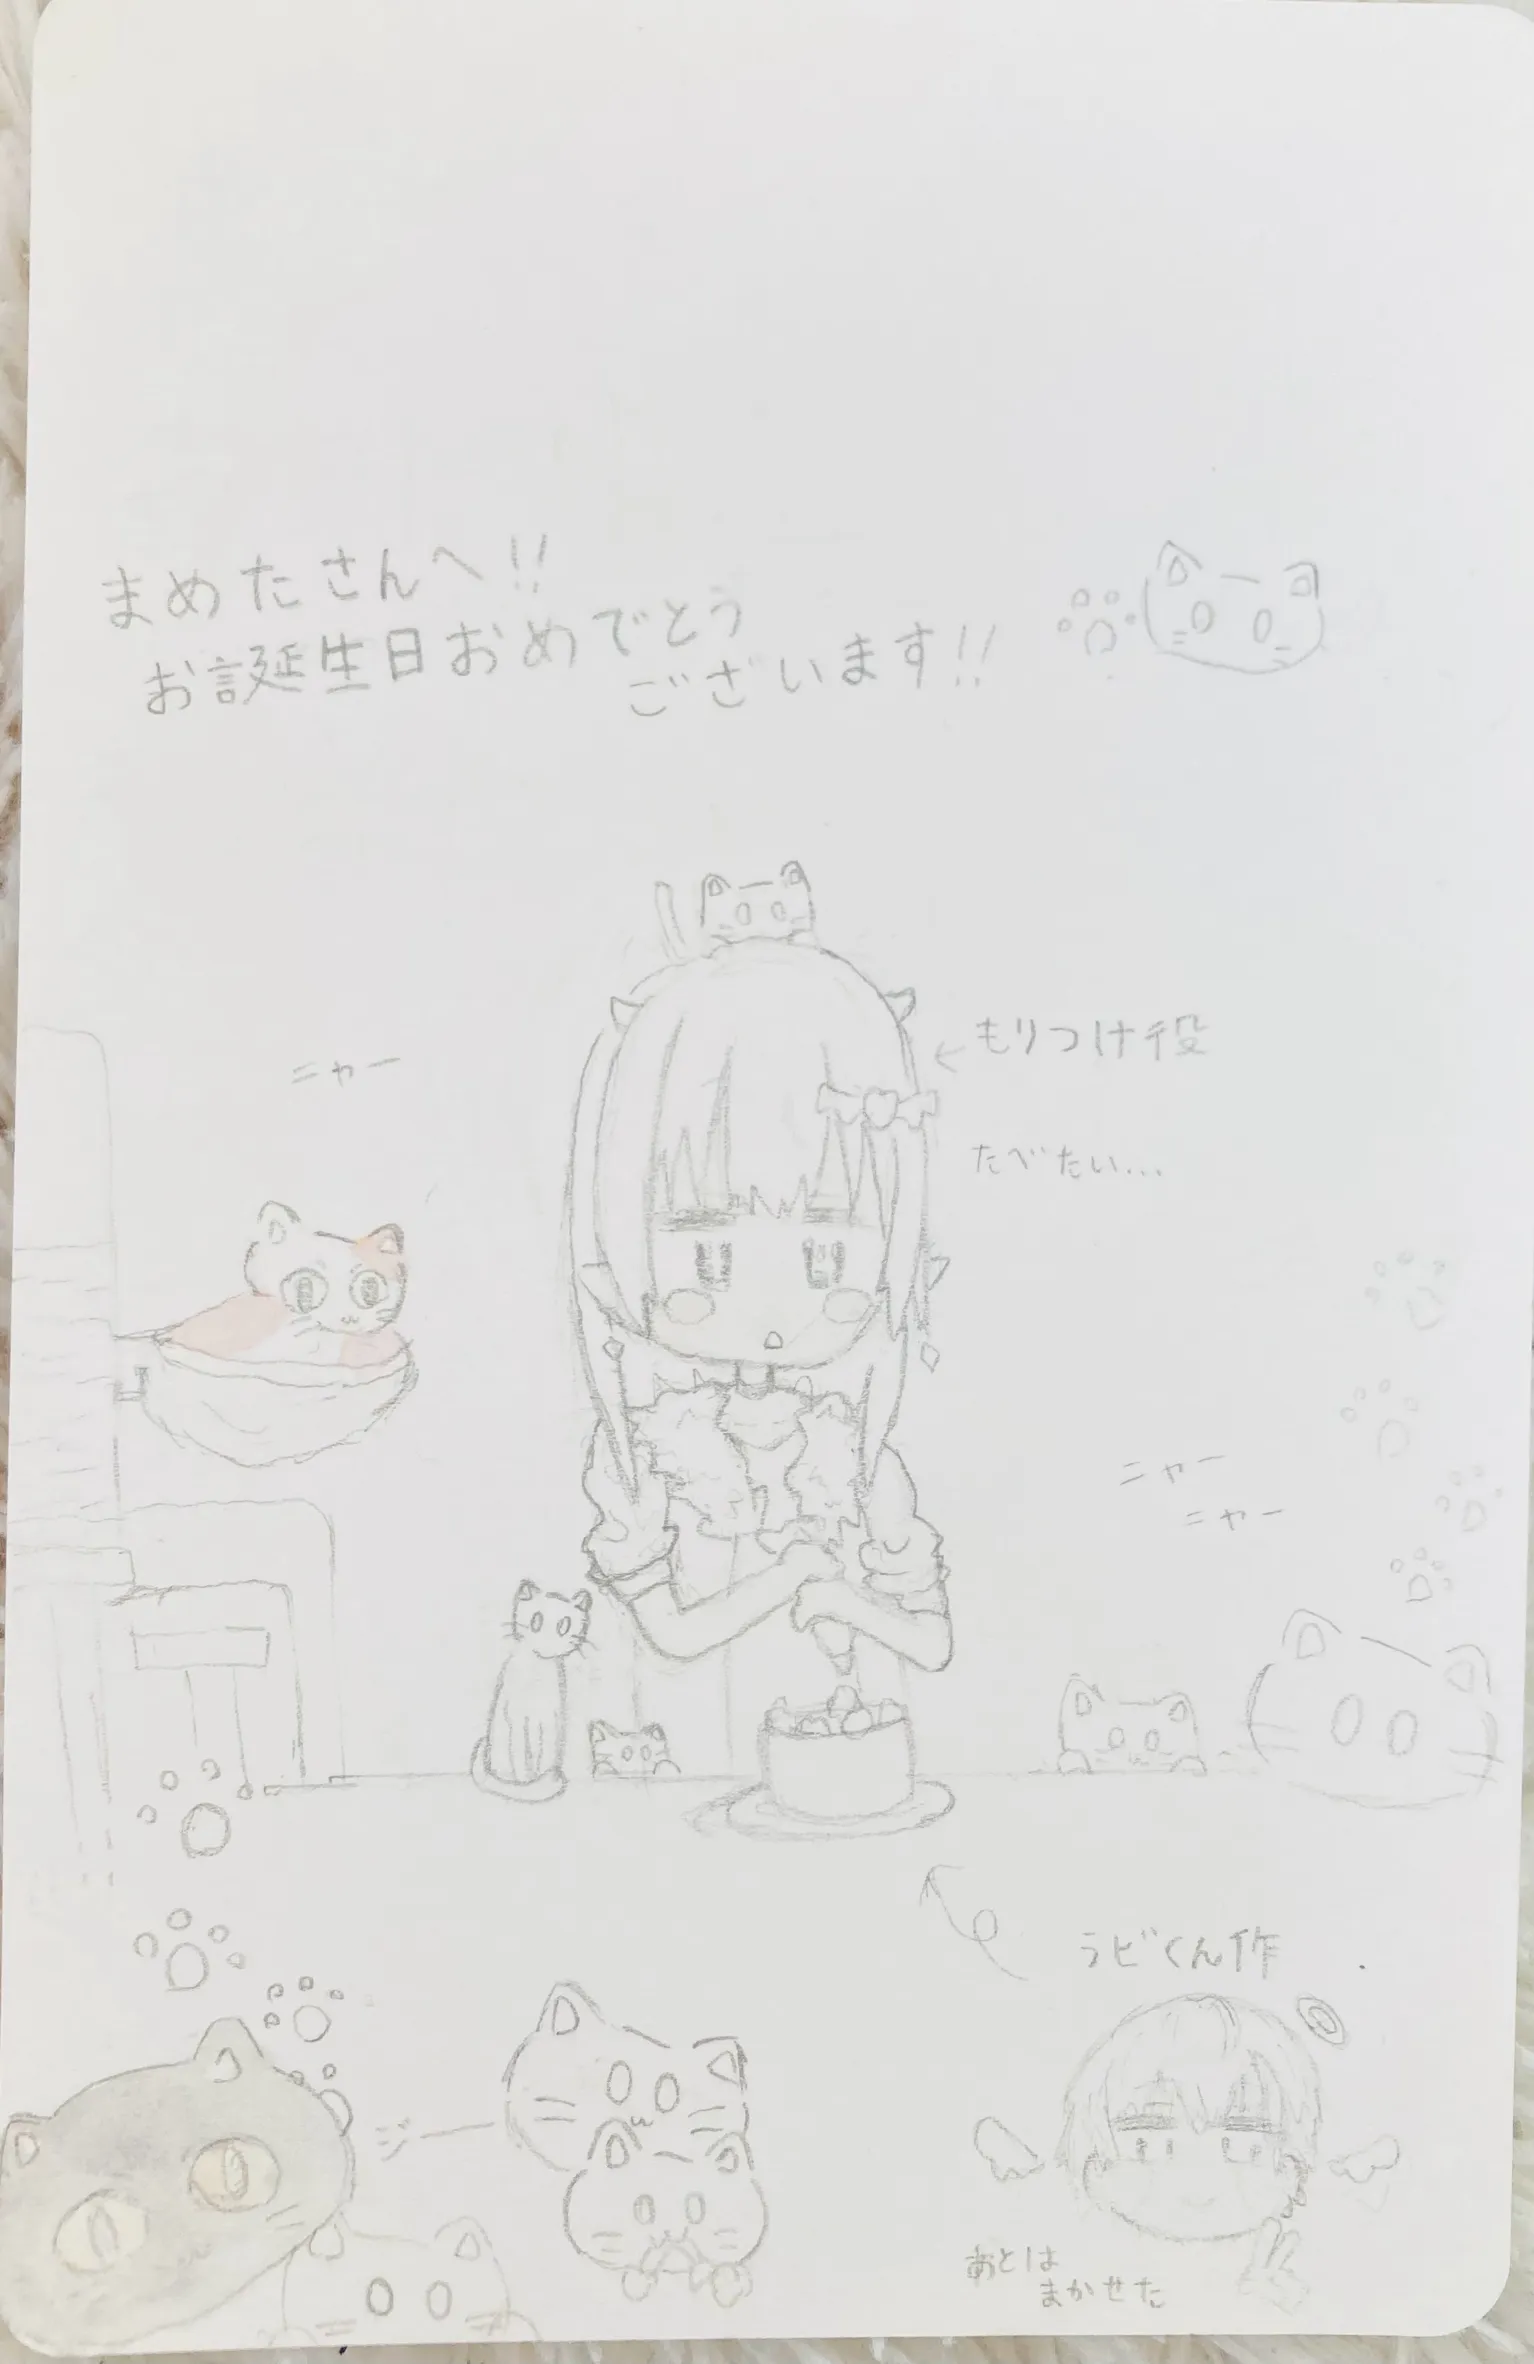 まめたさんへ!!
お誕生日おめでとう
ございます!!
もりつけ役
ニャー
たべたい...
ニャー
ニャー
ラビくん作
ジー
あとは
まかせた